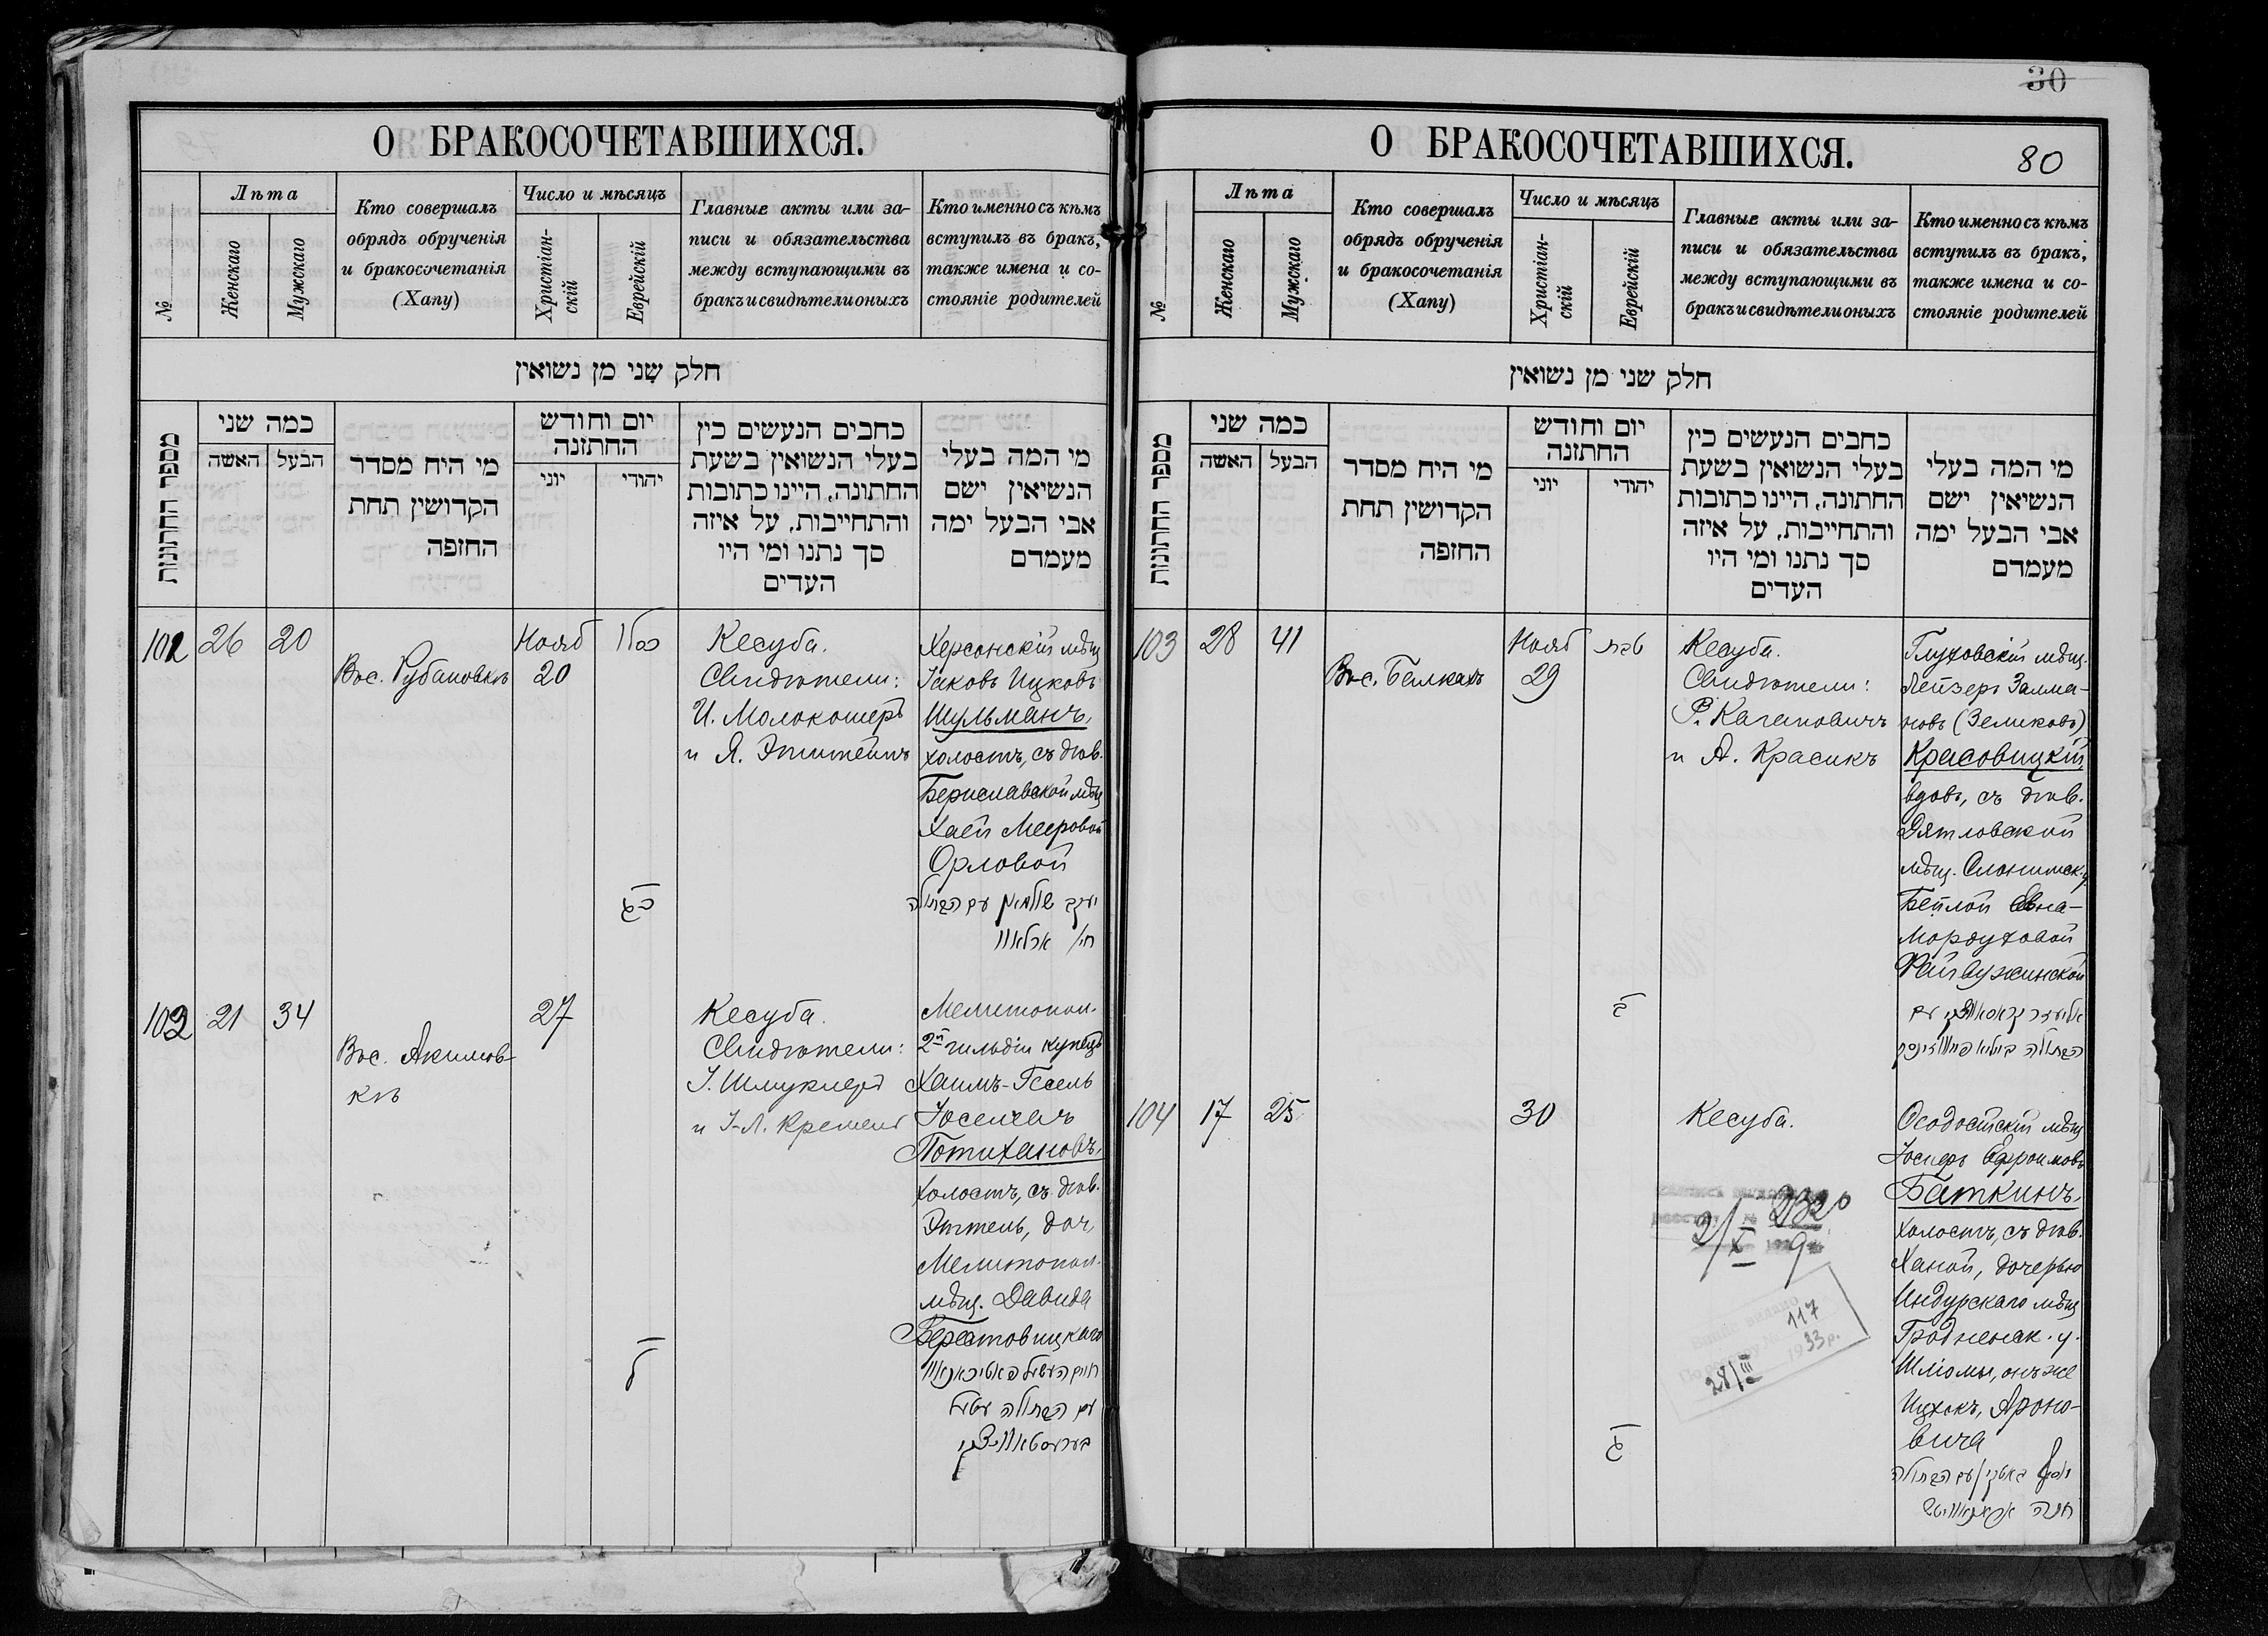 О БРАКОСОЧЕТАВШИХСЯ.
№
Лѣта
Женскаго
Мужскаго
Кто совершалъ
обрядъ обрученія
и бракосочетанія
(Хапу)
Число и мѣсяцъ
Христіан-
скій
Еврейскій
Главные акты или за-
писи и обязательства
между вступающими въ
бракъ и свидѣтели оныхъ
Кто именно съ кѣмъ
вступилъ въ бракъ,
также имена и со-
стояніе родителей
חלק שני מן נשואין
מספר החתונות
כמה שני
האשה
הבעל
מי היח מסדר
הקדושין תחת
החופה
יום וחודש
החתונה
יוני
יהודי
כתבים הנעשים בין
בעלי הנשואין בשעת
החתונה, היינו כתובות
והתחייבות, על איזה
סך נתנו ומי היו
העדים
מי המה בעלי
הנשיאין ישם
אבי הבעל ימה
מעמדם
101
26
20
Въ с. Рубановкѣ
Нояб
20
כסלו
Кесуба.
Свидѣтели:
И. Молокошеръ
и Я. Эпштейнъ
Херсонскій мѣщ
Іаковъ Ицковъ
Шульманъ,
холостъ, съ дѣв.
Бериславской мѣщ
Хаей Мееровой
Орловой
כג
יעקב שולמאן עם הבתולה
חי' ארלאוו
102
21
34
Въ с. Акимов-
кѣ
27
Кесуба.
Свидѣтели:
І. Шмуклеръ
и І-Л. Кремень
Мелитопол.
2й гильдіи купецъ
Хаимъ-Гесель
Іоселевъ
Потихановъ,
холостъ, съ дѣв.
Эттель, доч.
Мелитопол.
мѣщ. Давида
Берестовицкаго
ל
עם הבתולה עטיל
30
О БРАКОСОЧЕТАВШИХСЯ.
80
№
Лѣта
Женскаго
Мужскаго
Кто совершалъ
обрядъ обрученія
и бракосочетанія
(Хапу)
Число и мѣсяцъ
Христіан-
скій
Еврейскій
Главные акты или за-
писи и обязательства
между вступающими въ
бракъ и свидѣтели оныхъ
Кто именно съ кѣмъ
вступилъ въ бракъ,
также имена и со-
стояніе родителей
חלק שני מן נשואין
מספר החתונות
כמה שני
האשה
הבעל
מי היח מסדר
הקדושין תחת
החופה
יום וחודש
החתונה
יוני
יהודי
כתבים הנעשים בין
בעלי הנשואין בשעת
החתונה, היינו כתובות
והתחייבות, על איזה
סך נתנו ומי היו
העדים
מי המה בעלי
הנשיאין ישם
אבי הבעל ימה
מעמדם
103
28
41
Въ с. Белкахъ
Нояб
29
טבת
Кесуба.
Свидѣтели:
Р. Кагановичъ
и А. Красикъ
Глуховскій мѣщ.
Лейзеръ Залма-
новъ (Зеликовъ)
Красовицкій,
вдовъ, съ дѣв.
Дятловской
мѣщ. Слонимск. у
Бейлой
Мордуховой
ב
הבתולה ביילא
104
17
25
30
Кесуба.
Ѳеодосійскій мѣщ
Іосифъ Ефроимовъ
Баткинъ,
холостъ, съ дѣв.
Ханой, дочерью
Индурскаго мѣщ
Гродненск. у.
Шліомы, онъ же
Ицхокъ, Ароно-
вича
ג
יוסף באטקין עם הבתולה
חנה
2320
2/X 9
117
1933 р.
28/III